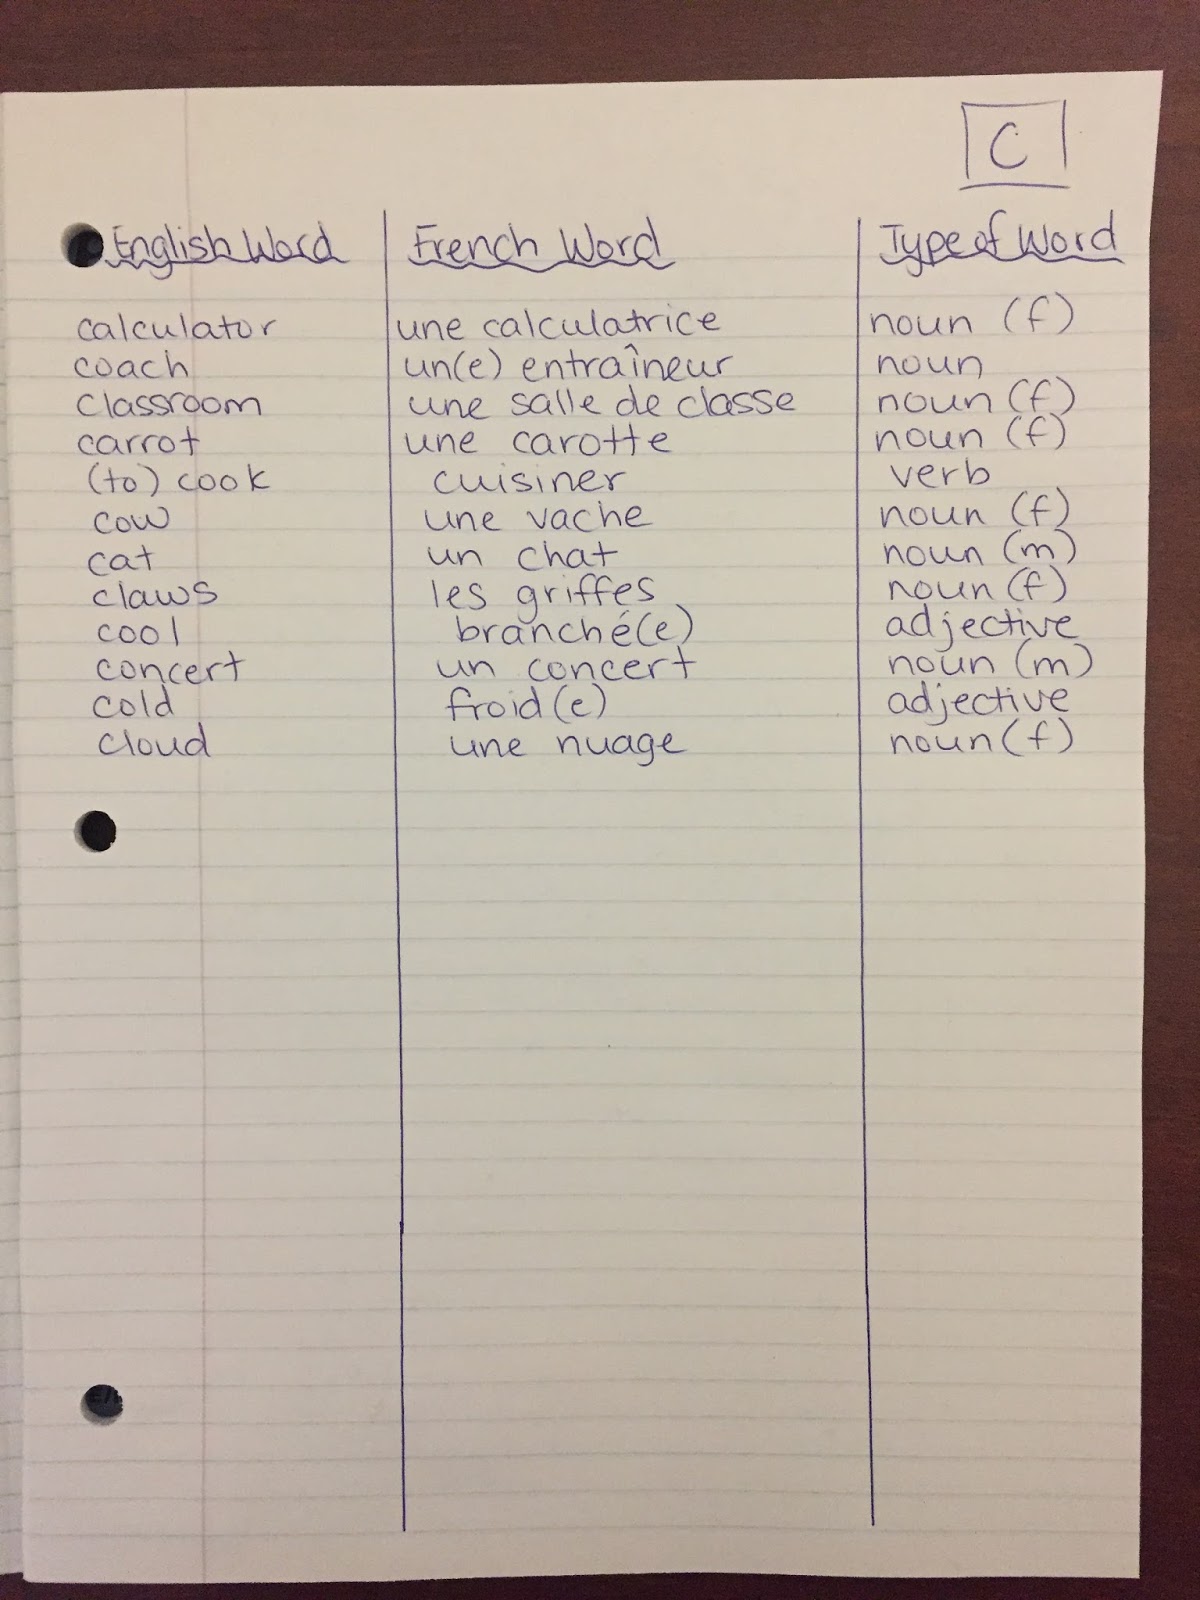 C
English Word French Word Type of Word
calculator une calculatrice noun (f)
coach un(e) entraîneur noun
classroom une salle de classe noun (f)
carrot une carotte noun (f)
(to) cook cuisiner verb
cow une vache noun (f)
cat un chat noun (m)
claws les griffes noun (f)
cool branché(e) adjective
concert un concert noun (m)
cold froid(e) adjective
cloud une nuage noun (f)